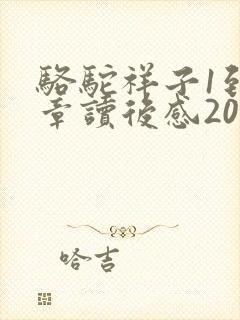 駱駝祥子1到
章讀後感20
哈吉